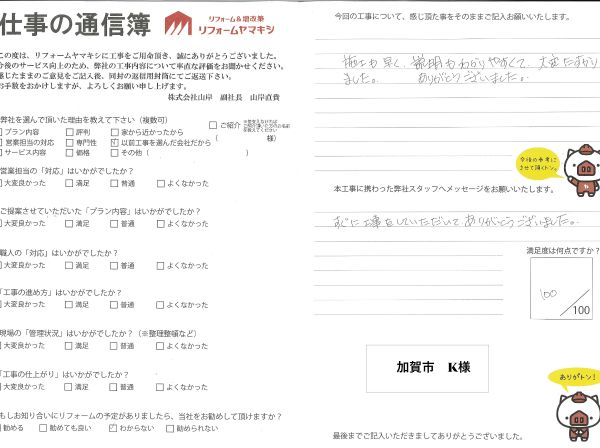 仕事の通信簿
リフォーム&増改築
リフォームヤマキシ
この度は、リフォームヤマキシに工事をご用命頂き、誠にありがとうございました。
今後のサービス向上のため、弊社の工事内容について率直な評価をお聞かせください。
感じたままのご意見をご記入後、同封の返信用封筒にてご返送下さい。
お手数をおかけしますが、よろしくお願い申し上げます。
株式会社山岸 副社長 山岸直貴
弊社を選んで頂いた理由を教えて下さい(複数可)
プラン内容 評判 家から近かったから
営業担当の対応 専門性 以前工事を頼んだ会社だから
サービス内容 価格 その他( )
ご紹介
( 様)
営業担当の「対応」はいかがでしたか?
大変良かった 満足 普通 よくなかった
ご提案させていただいた「プラン内容」はいかがでしたか?
大変良かった 満足 普通 よくなかった
職人の「対応」はいかがでしたか?
大変良かった 満足 普通 よくなかった
「工事の進め方」はいかがでしたか?
大変良かった 満足 普通 よくなかった
現場の「管理状況」はいかがでしたか?(※整理整頓など)
大変良かった 満足 普通 よくなかった
「工事の仕上がり」はいかがでしたか?
大変良かった 満足 普通 よくなかった
もしお知り合いにリフォームの予定がありましたら、当社をお勧めして頂けますか?
勧める 勧めても良い わからない 勧められない
今回の工事について、感じ頂た事をそのままご記入お願いいたします。
施工も早く、説明もわかりやすくて、大変たすかり
ました。 ありがとうございました。
今後の参考に
させて頂くトン。
本工事に携わった弊社スタッフへメッセージをお願いいたします。
すぐに工事をしていただいて、ありがとうございました。
満足度は何点ですか?
100
/100
加賀市 K様
ありがトン!
最後までご記入いただきましてありがとうございました。